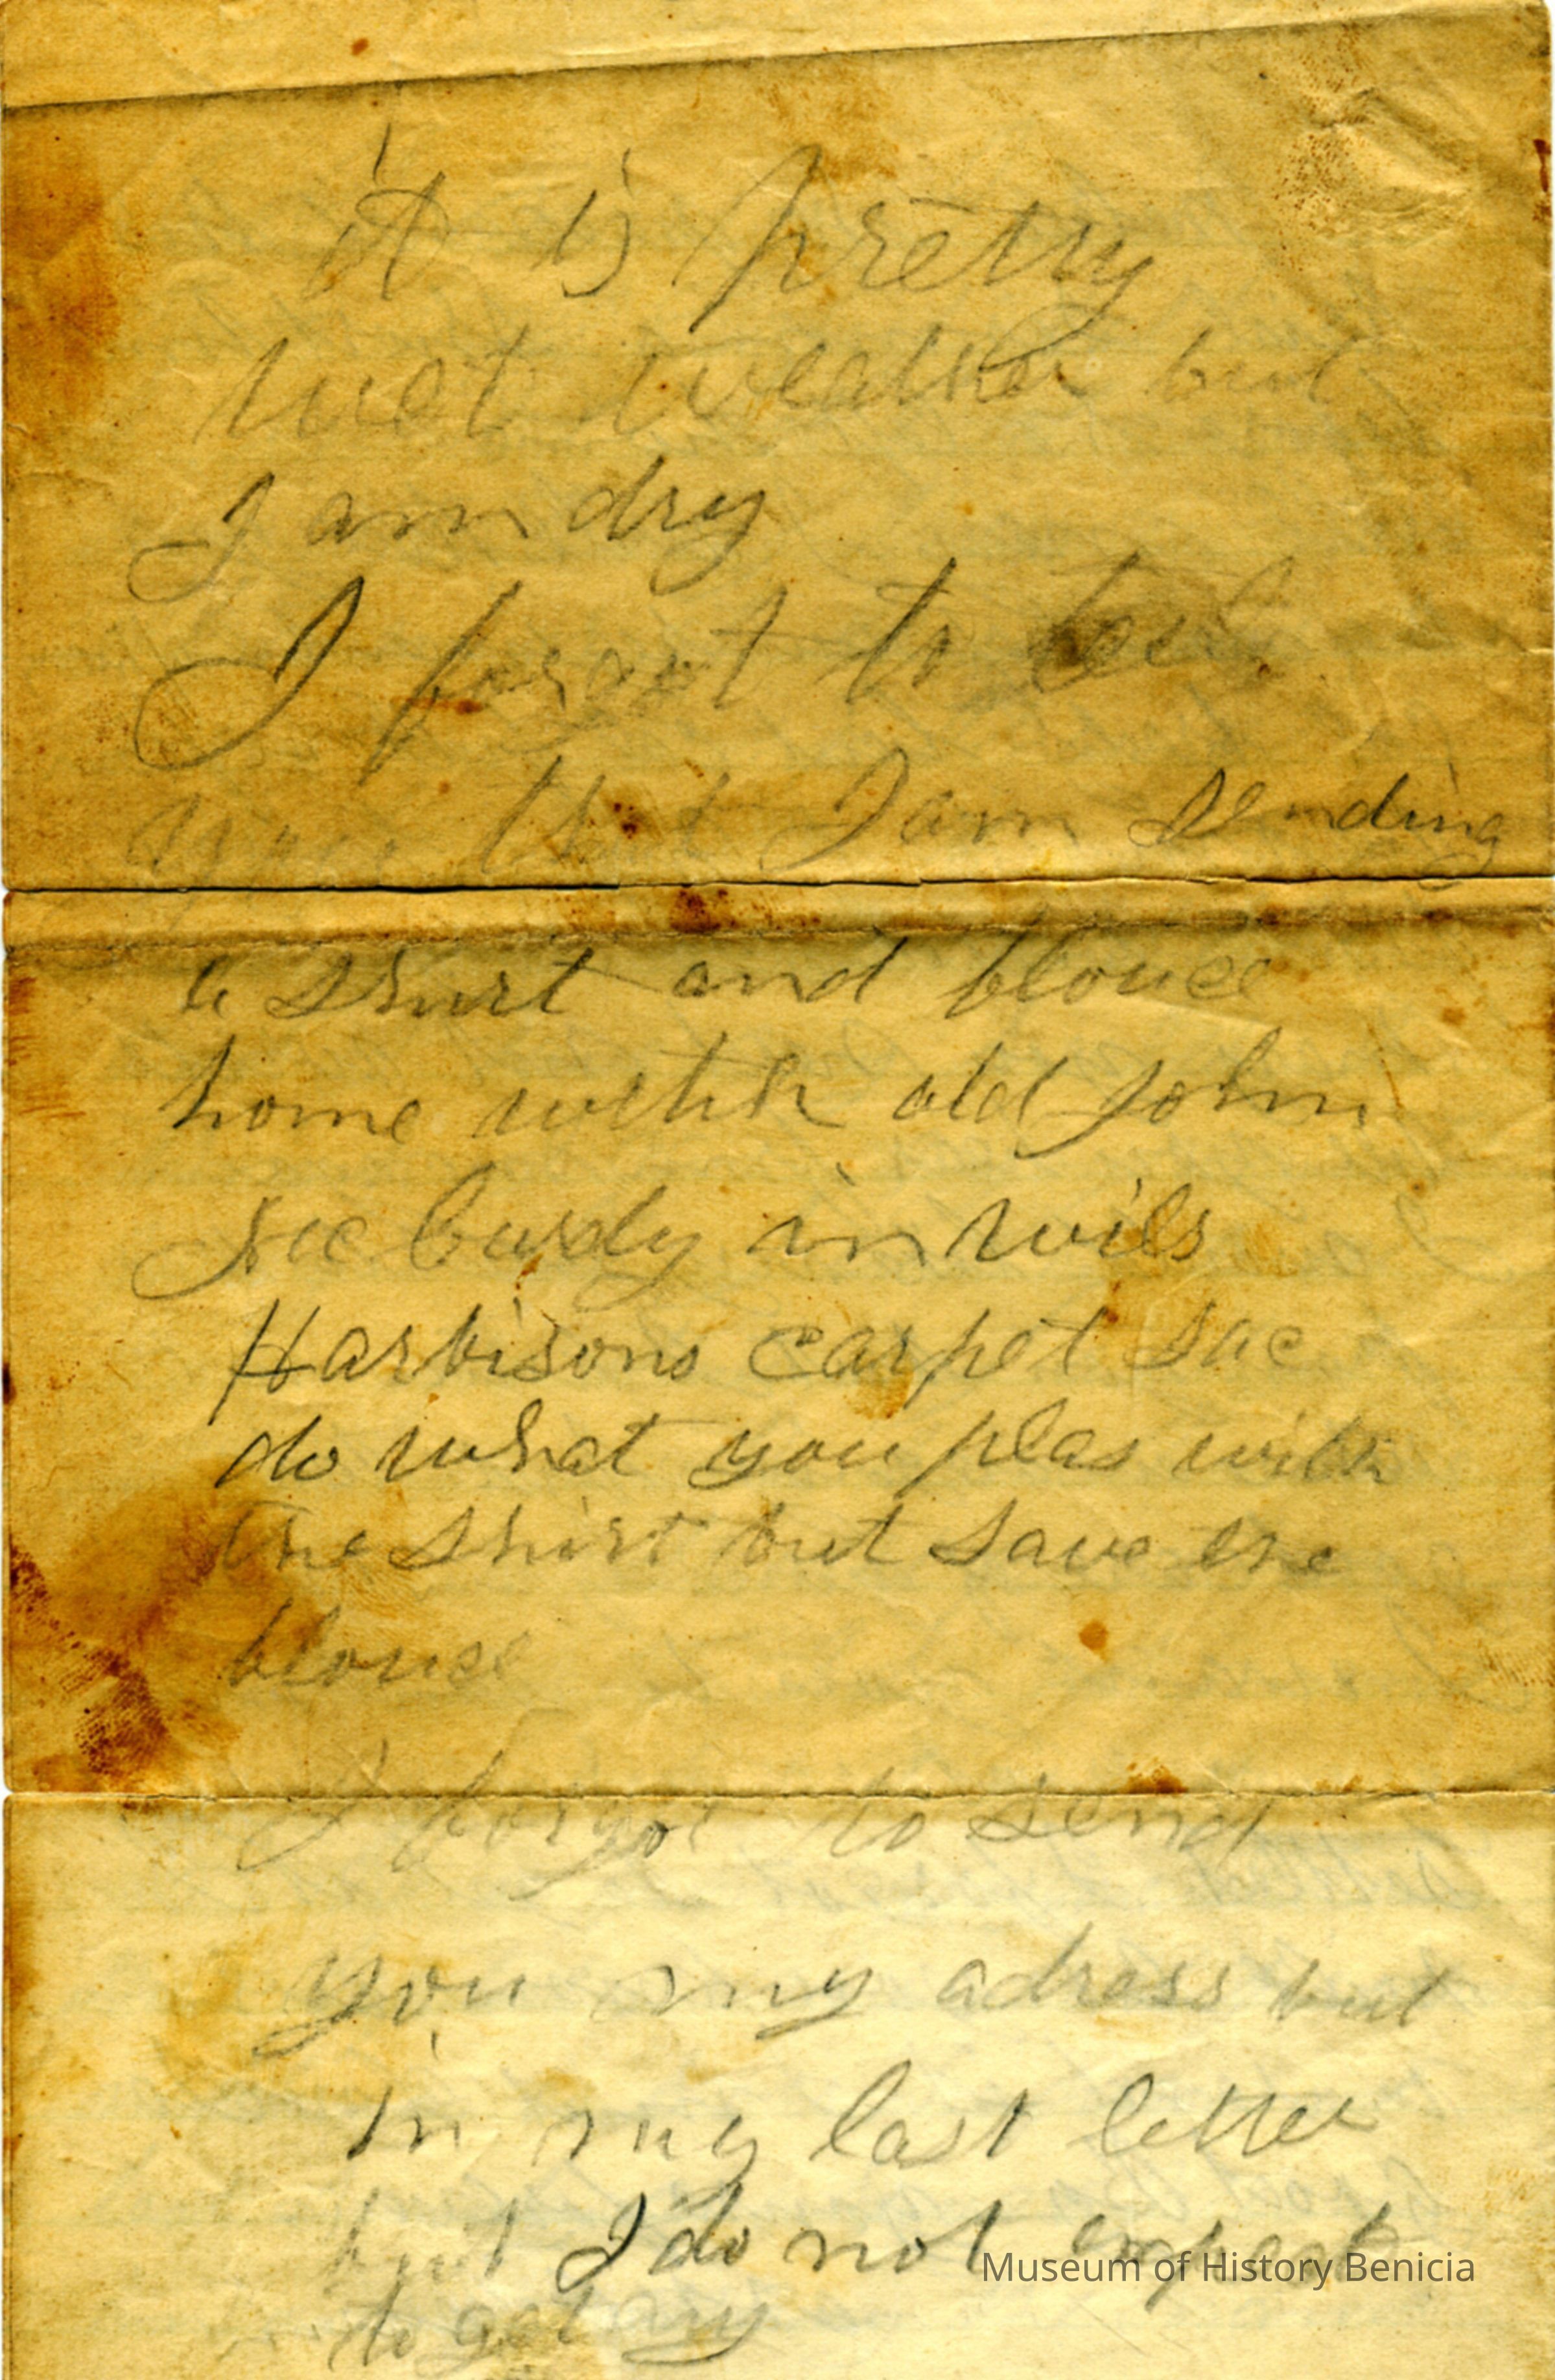 it is pretty
wet weather but
I am dry
I forgot to tell
you that I am sending
a shurt and blouce
home with old John
in wils
Harbisons carpet sac
do what you pleas with
the shirt but save the
blouse
I forgot to send
you my adress but
in my last letter
but I do not expect
to get any
Museum of History Benicia